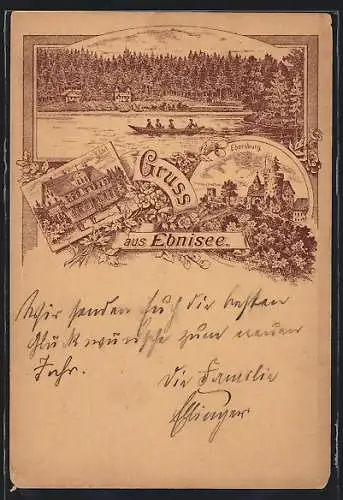 Ebersburg
Gruss
aus Ebnisee.
Wir senden Euch die besten
Glückwünsche zum neuen
Jahr.
Die Familie